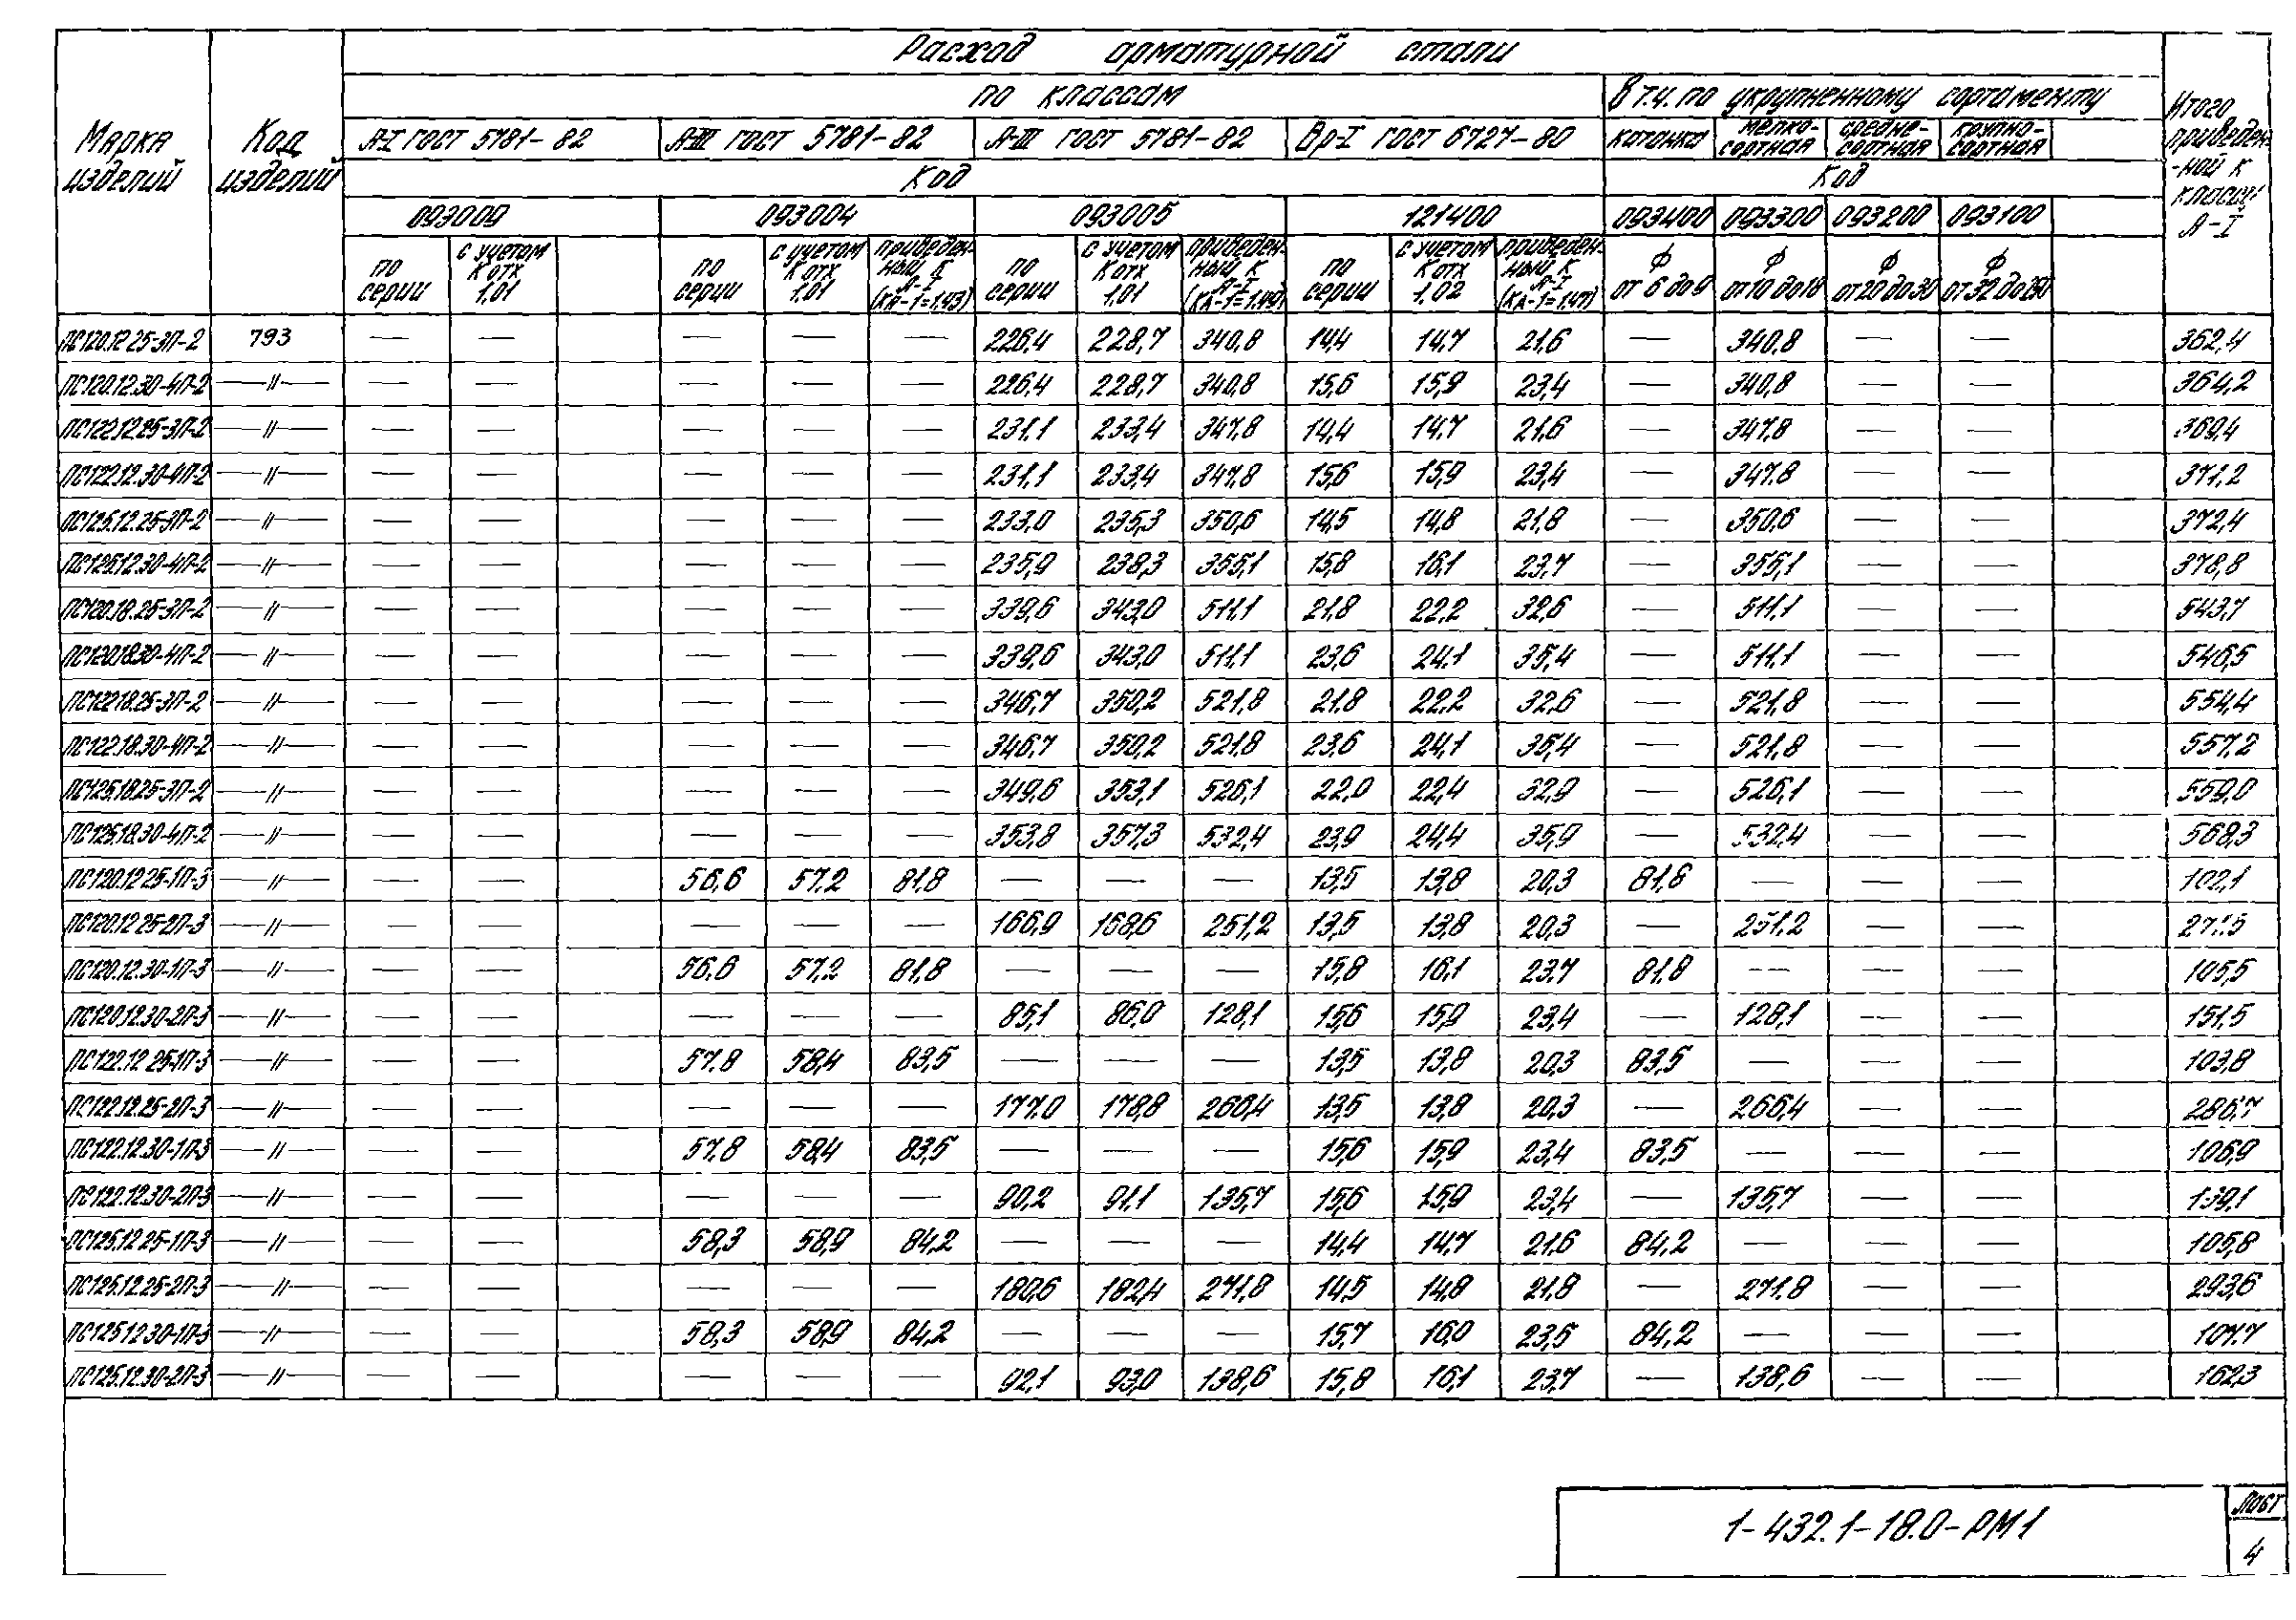 Расход арматурной стали
по классам
В т.ч. по укрупненному сортаменту
Марка изделий
Код изделий
Итого приведен-ной к классу А-I
А-I ГОСТ 5781-82 А-III ГОСТ 5781-82 А-III ГОСТ 5781-82 Вр-I ГОСТ 6727-80 катанка мелко-сортная средне-сортная крупно-сортная
Код Код
093009 093004 093005 121400 093400 093300 093200 093100
по серии с учетом К отх 1,01 по серии с учетом К отх 1,01 приведен-ный к А-I (КА-1=1,43) по серии с учетом К отх 1,01 приведен-ный к А-I (КА-1=1,49) по серии с учетом К отх 1,02 приведен-ный к А-I (КА-1=1,47) ф от 6 до 9 ф от 10 до 18 ф от 20 до 30 ф от 32 до
ПС120.12.25-3П-2 793 — — — — — 226,4 228,7 340,8 14,4 14,7 21,6 — 340,8 — — 362,4
ПС120.12.30-4П-2 —"— — — — — — 226,4 228,7 340,8 15,6 15,9 23,4 — 340,8 — — 364,2
ПС122.12.25-3П-2 —"— — — — — — 231,1 233,4 347,8 14,4 14,7 21,6 — 347,8 — — 369,4
ПС122.12.30-4П-2 —"— — — — — — 231,1 233,4 347,8 15,6 15,9 23,4 — 347,8 — — 371,2
ПС125.12.25-3П-2 —"— — — — — — 233,0 235,3 350,6 14,5 14,8 21,8 — 350,6 — — 372,4
ПС125.12.30-4П-2 —"— — — — — — 235,9 238,3 355,1 15,8 16,1 23,7 — 355,1 — — 378,8
ПС120.18.25-3П-2 —"— — — — — — 339,6 343,0 511,1 21,8 22,2 32,6 — 511,1 — — 543,7
ПС120.18.30-4П-2 —"— — — — — — 339,6 343,0 511,1 23,6 24,1 35,4 — 511,1 — — 546,5
ПС122.18.25-3П-2 —"— — — — — — 346,7 350,2 521,8 21,8 22,2 32,6 — 521,8 — — 554,4
ПС122.18.30-4П-2 —"— — — — — — 346,7 350,2 521,8 23,6 24,1 35,4 — 521,8 — — 557,2
ПС125.18.25-3П-2 —"— — — — — — 349,6 353,1 526,1 22,0 22,4 32,9 — 526,1 — — 559,0
ПС125.18.30-4П-2 —"— — — — — — 353,8 357,3 532,4 23,9 24,4 35,9 — 532,4 — — 568,3
ПС120.12.25-1П-3 —"— — — 56,6 57,2 81,8 — — — 13,5 13,8 20,3 81,8 — — — 102,1
ПС120.12.25-2П-3 —"— — — — — — 166,9 168,6 251,2 13,5 13,8 20,3 — 251,2 — —
ПС120.12.30-1П-3 —"— — — 56,6 57,2 81,8 — — — 15,8 16,1 23,7 81,8 — — — 105,5
ПС120.12.30-2П-3 —"— — — — — — 85,1 86,0 128,1 15,6 15,9 23,4 — 128,1 — — 151,5
ПС122.12.25-1П-3 —"— — — 57,8 58,4 83,5 — — — 13,5 13,8 20,3 83,5 — — — 103,8
ПС122.12.25-2П-3 —"— — — — — — 177,0 178,8 266,4 13,5 13,8 20,3 — 266,4 — — 286,7
ПС122.12.30-1П-3 —"— — — 57,8 58,4 83,5 — — — 15,6 15,9 23,4 83,5 — — — 106,9
ПС122.12.30-2П-3 —"— — — — — — 90,2 91,1 135,7 15,6 15,9 23,4 — 135,7 — — 139,1
ПС125.12.25-1П-3 —"— — — 58,3 58,9 84,2 — — — 14,4 14,7 21,6 84,2 — — — 105,8
ПС125.12.25-2П-3 —"— — — — — — 180,6 182,4 271,8 14,5 14,8 21,8 — 271,8 — — 293,6
ПС125.12.30-1П-3 —"— — — 58,3 58,9 84,2 — — — 15,7 16,0 23,5 84,2 — — — 107,7
ПС125.12.30-2П-3 —"— — — — — — 92,1 93,0 138,6 15,8 16,1 23,7 — 138,6 — — 162,3
1-432.1-18.0-РМ1
Лист
4